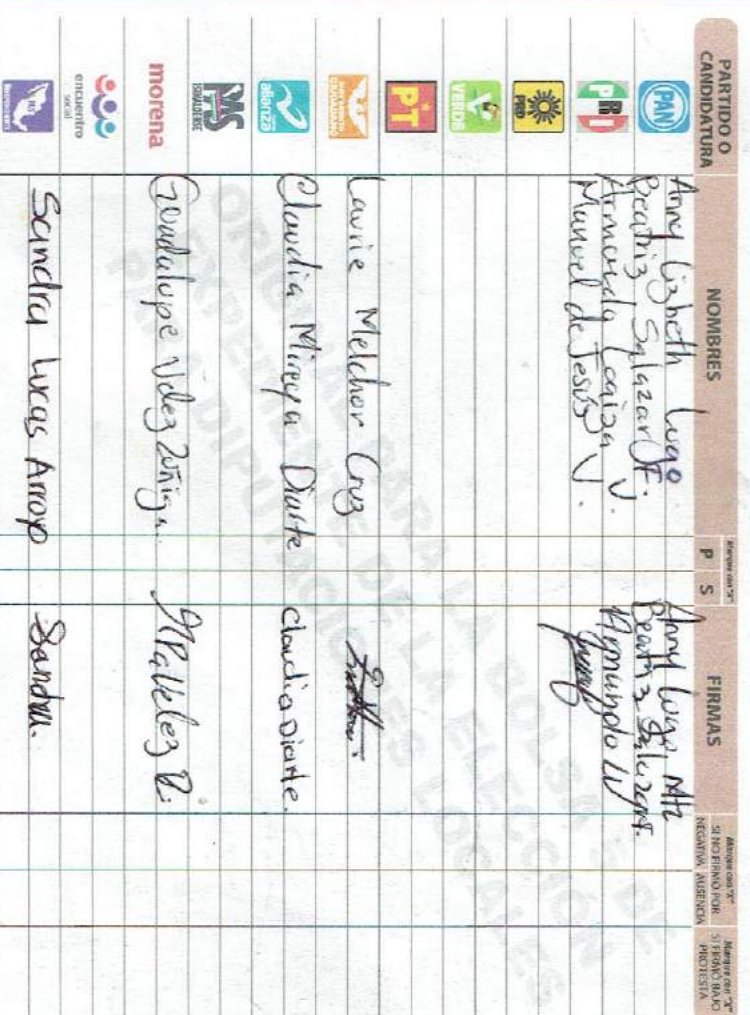 PARTIDO O CANDIDATURA NOMBRES Marque con "X" P S FIRMAS Marque con "X" SI NO FIRMÓ POR NEGATIVA AUSENCIA Marque con "X" SI FIRMÓ BAJO PROTESTA
PAN Anny Lizbeth Lugo Anny Lugo Mtz
Beatriz Salazar F. Beatriz Salazar F.
PRI Armando Loaiza V. Armando LV
Manuel de Jesús V.
PRD
VERDE
PT
MOVIMIENTO CIUDADANO Laurie Melchor Cruz
alianza Claudia Mireya Diarte Claudia Diarte.
PAS SINALOENSE
morena Guadalupe Velez Zuñiga.
encuentro social
Sandra Lucas Arroyo Sandra.
ORIGINAL PARA LA BOLSA DE
EXPEDIENTE DE LA ELECCIÓN
PARA DIPUTACIONES LOCALES